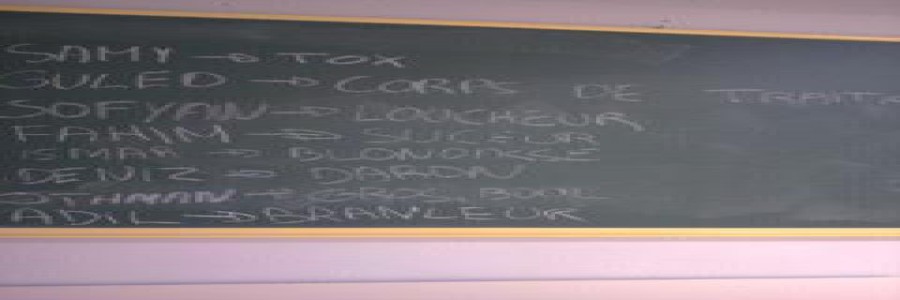 SAMY → TOX
GULED → CORPS DE
SOFYAN → LOUCHEUR
FAHIM → SUCEUR
ISMAN →
DENIZ → DARON
OTHMAN → GROS BOOL
ADIL → BRANLEUR